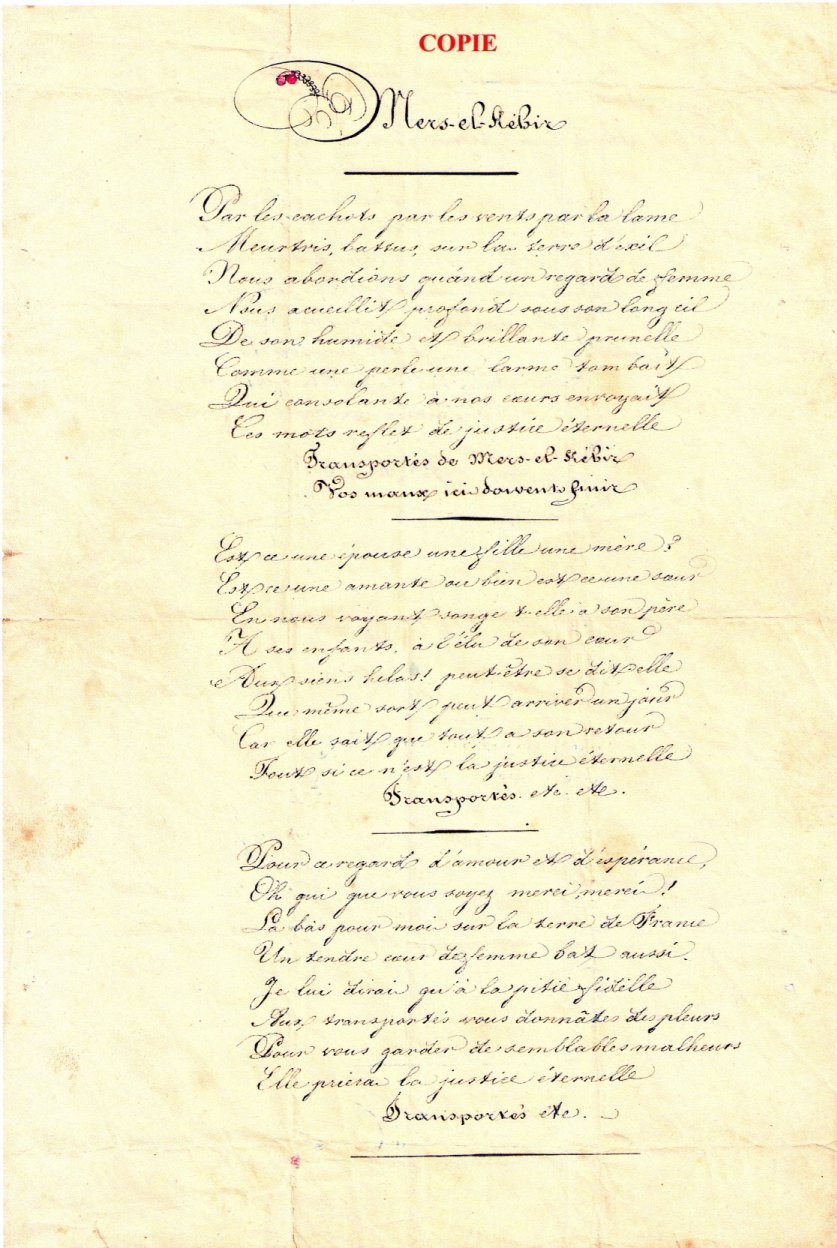 COPIE
Mers-el-Kébir
Par les cachots par les vents par la lame
Meurtris, battus, sur la terre d'exil
Nous abordions quand un regard de femme
Nous acueillit profond sous son long cil
De son humide et brillante prunelle
Comme une perle une larme tombait
Qui consolante à nos cœurs envoyait
Ces mots reflet de justice éternelle
Transportés de Mers-el-Kébir
Vos maux ici doivents finir
Est ce une épouse une fille une mère ?
Est ce une amante ou bien est ce une sœur
En nous voyant songe t-elle a son père
A ses enfants, à l'élu de son cœur
Aux siens hélas! peut-être se dit elle
Que même sort peut arriver un jour
Car elle sait que tout a son retour
Tout si ce n'est la justice éternelle
Transportés. etc. etc.
Pour ce regard d'amour et d'espérance,
Oh qui que vous soyez merci, merci !
La bas pour moi sur la terre de France
Un tendre cœur de femme bat aussi.
Je lui dirai qu'à la pitié fidèlle
Aux transportés vous donnâtes des pleurs
Pour vous garder de semblables malheurs
Elle priera la justice éternelle
Transportés etc.